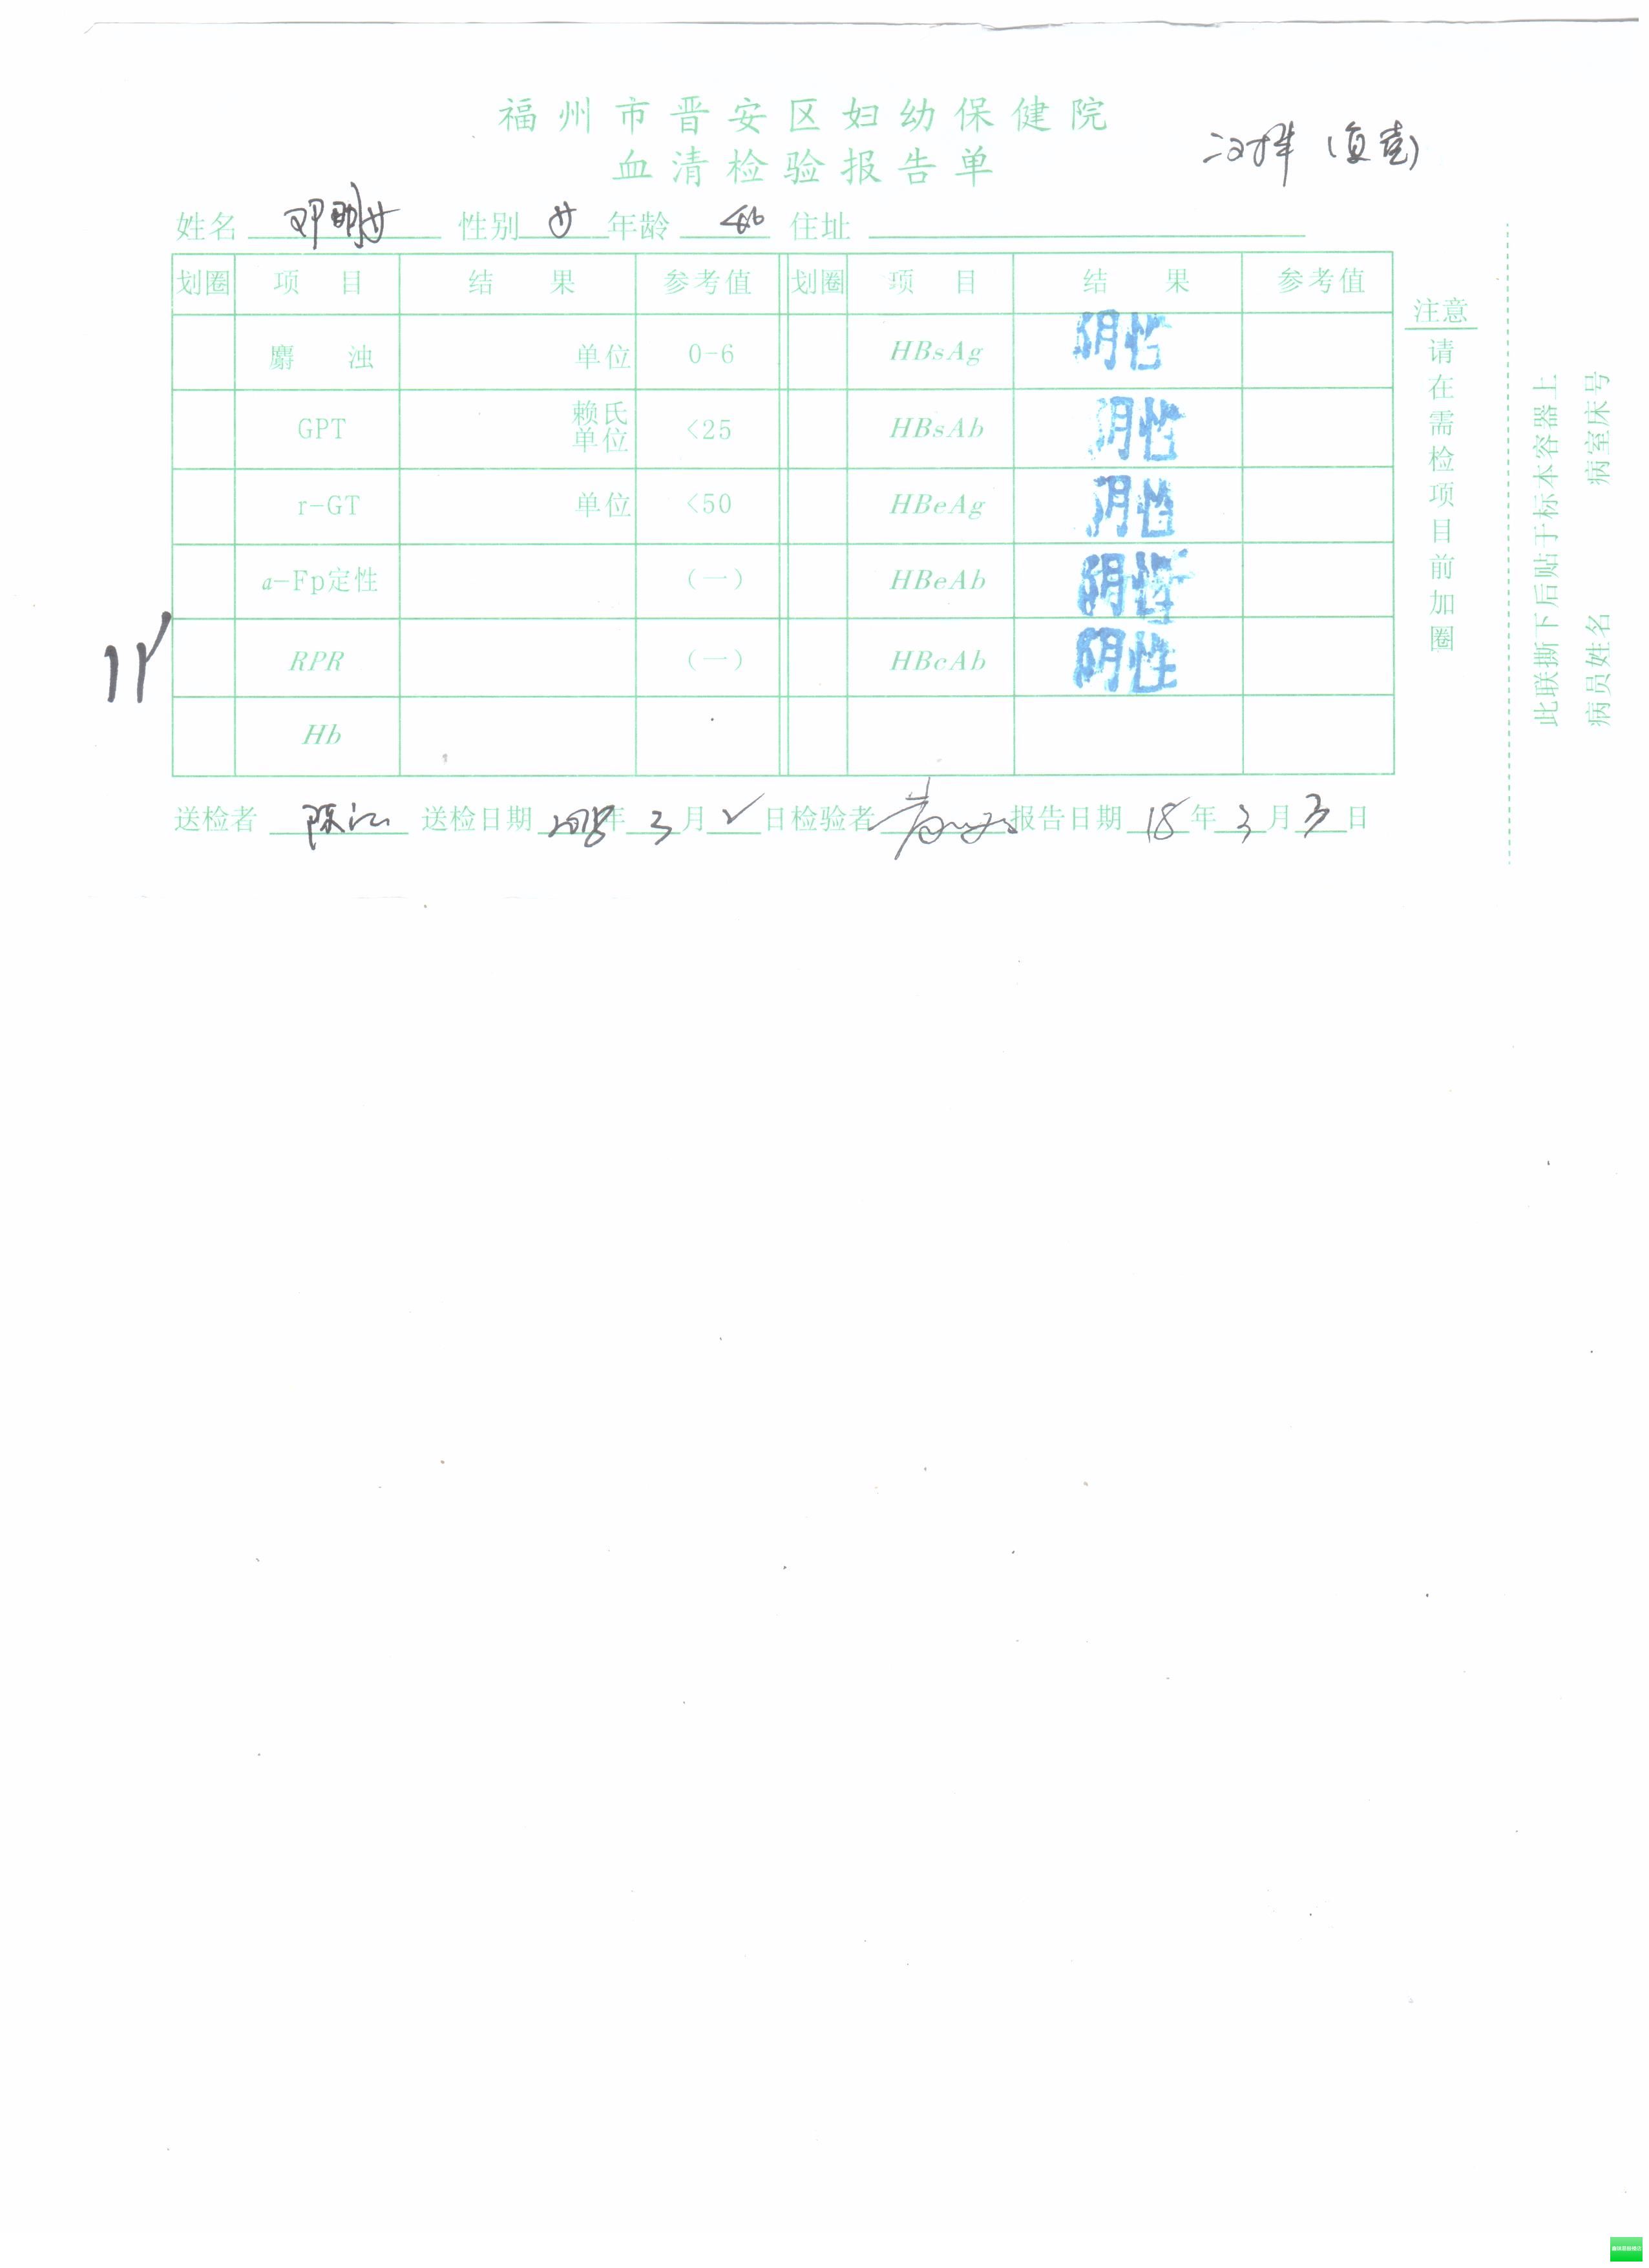 福州市晋安区妇幼保健院
血清检验报告单
姓名 性别 女 年龄 46 住址
划圈 项目 结果 参考值 划圈 项目 结果 参考值
麝浊 单位 0-6 HBsAg 阴性
GPT 赖氏单位 <25 HBsAb 阴性
r-GT 单位 <50 HBeAg 阴性
a-Fp定性 (一) HBeAb 阴性
RPR (一) HBcAb 阴性
Hb
送检者 陈 送检日期 2018年 3月 2日 检验者 报告日期 18年 3月 3日
注意
请在需检项目前加圈
此联撕下后贴于标本容器上
病员姓名 病室床号